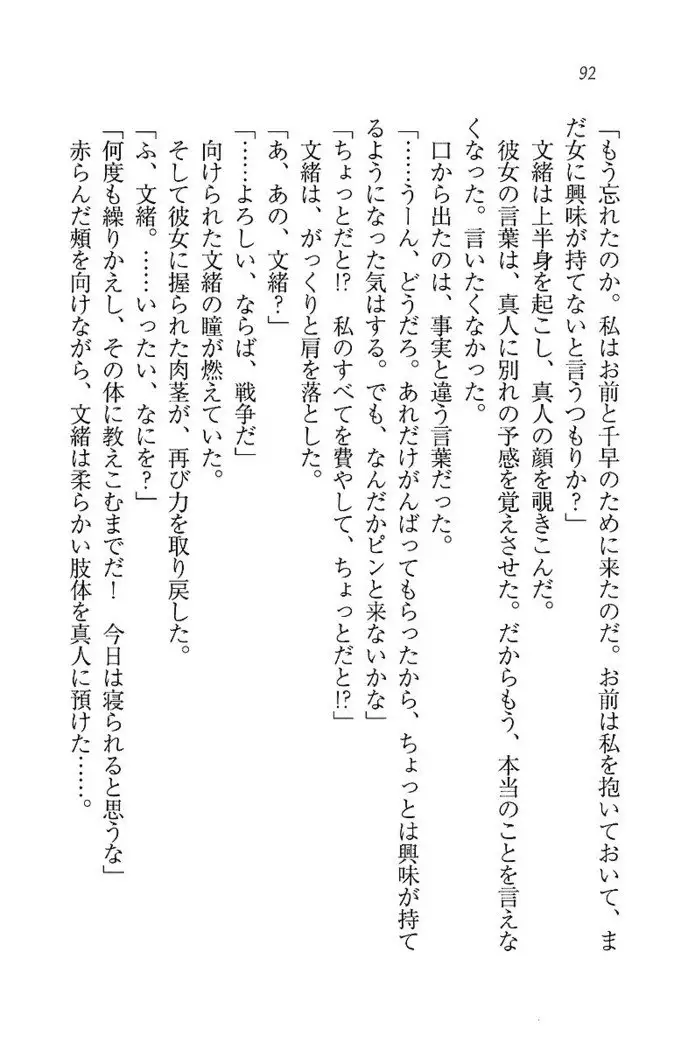 92
「もう忘れたのか。私はお前と千早のために来たのだ。お前は私を抱いておいて、ま
だ女に興味が持てないと言うつもりか？」
文緒は上半身を起こし、真人の顔を覗きこんだ。
彼女の言葉は、真人に別れの予感を覚えさせた。だからもう、本当のことを言えな
くなった。言いたくなかった。
口から出たのは、事実と違う言葉だった。
「……うーん、どうだろ。あれだけがんばってもらったから、ちょっとは興味が持て
るようになった気はする。でも、なんだかピンと来ないかな」
「ちょっとだと!?　私のすべてを費やして、ちょっとだと!?」
文緒は、がっくりと肩を落とした。
「あ、あの、文緒？」
「……よろしい、ならば、戦争だ」
向けられた文緒の瞳が燃えていた。
そして彼女に握られた肉茎が、再び力を取り戻した。
「ふ、文緒。……いったい、なにを？」
「何度も繰りかえし、その体に教えこむまでだ！　今日は寝られると思うな」
赤らんだ頬を向けながら、文緒は柔らかい肢体を真人に預けた……。